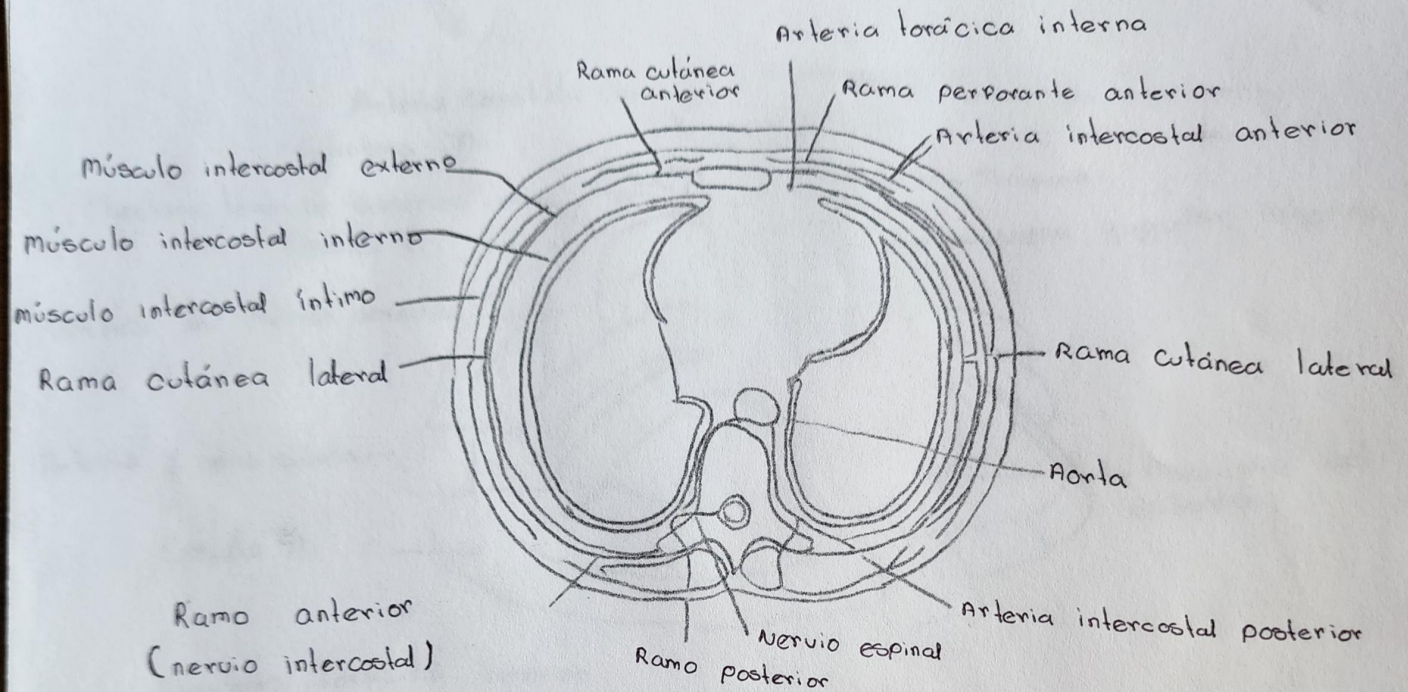 Arteria torácica interna
Rama cutánea
anterior
Rama perporante anterior
Arteria intercostal anterior
Músculo intercostal externo
Músculo intercostal interno
músculo intercostal íntimo
Rama cutánea lateral
Rama cutánea lateral
Aorta
Ramo anterior
(nervio intercostal)
Ramo posterior
Nervio espinal
Arteria intercostal posterior